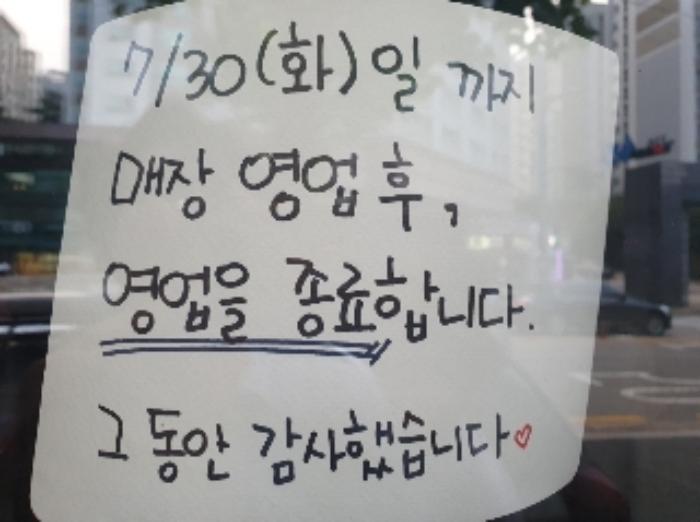 7/30(화)일 까지
매장 영업 후,
영업을 종료합니다.
그동안 감사했습니다♡